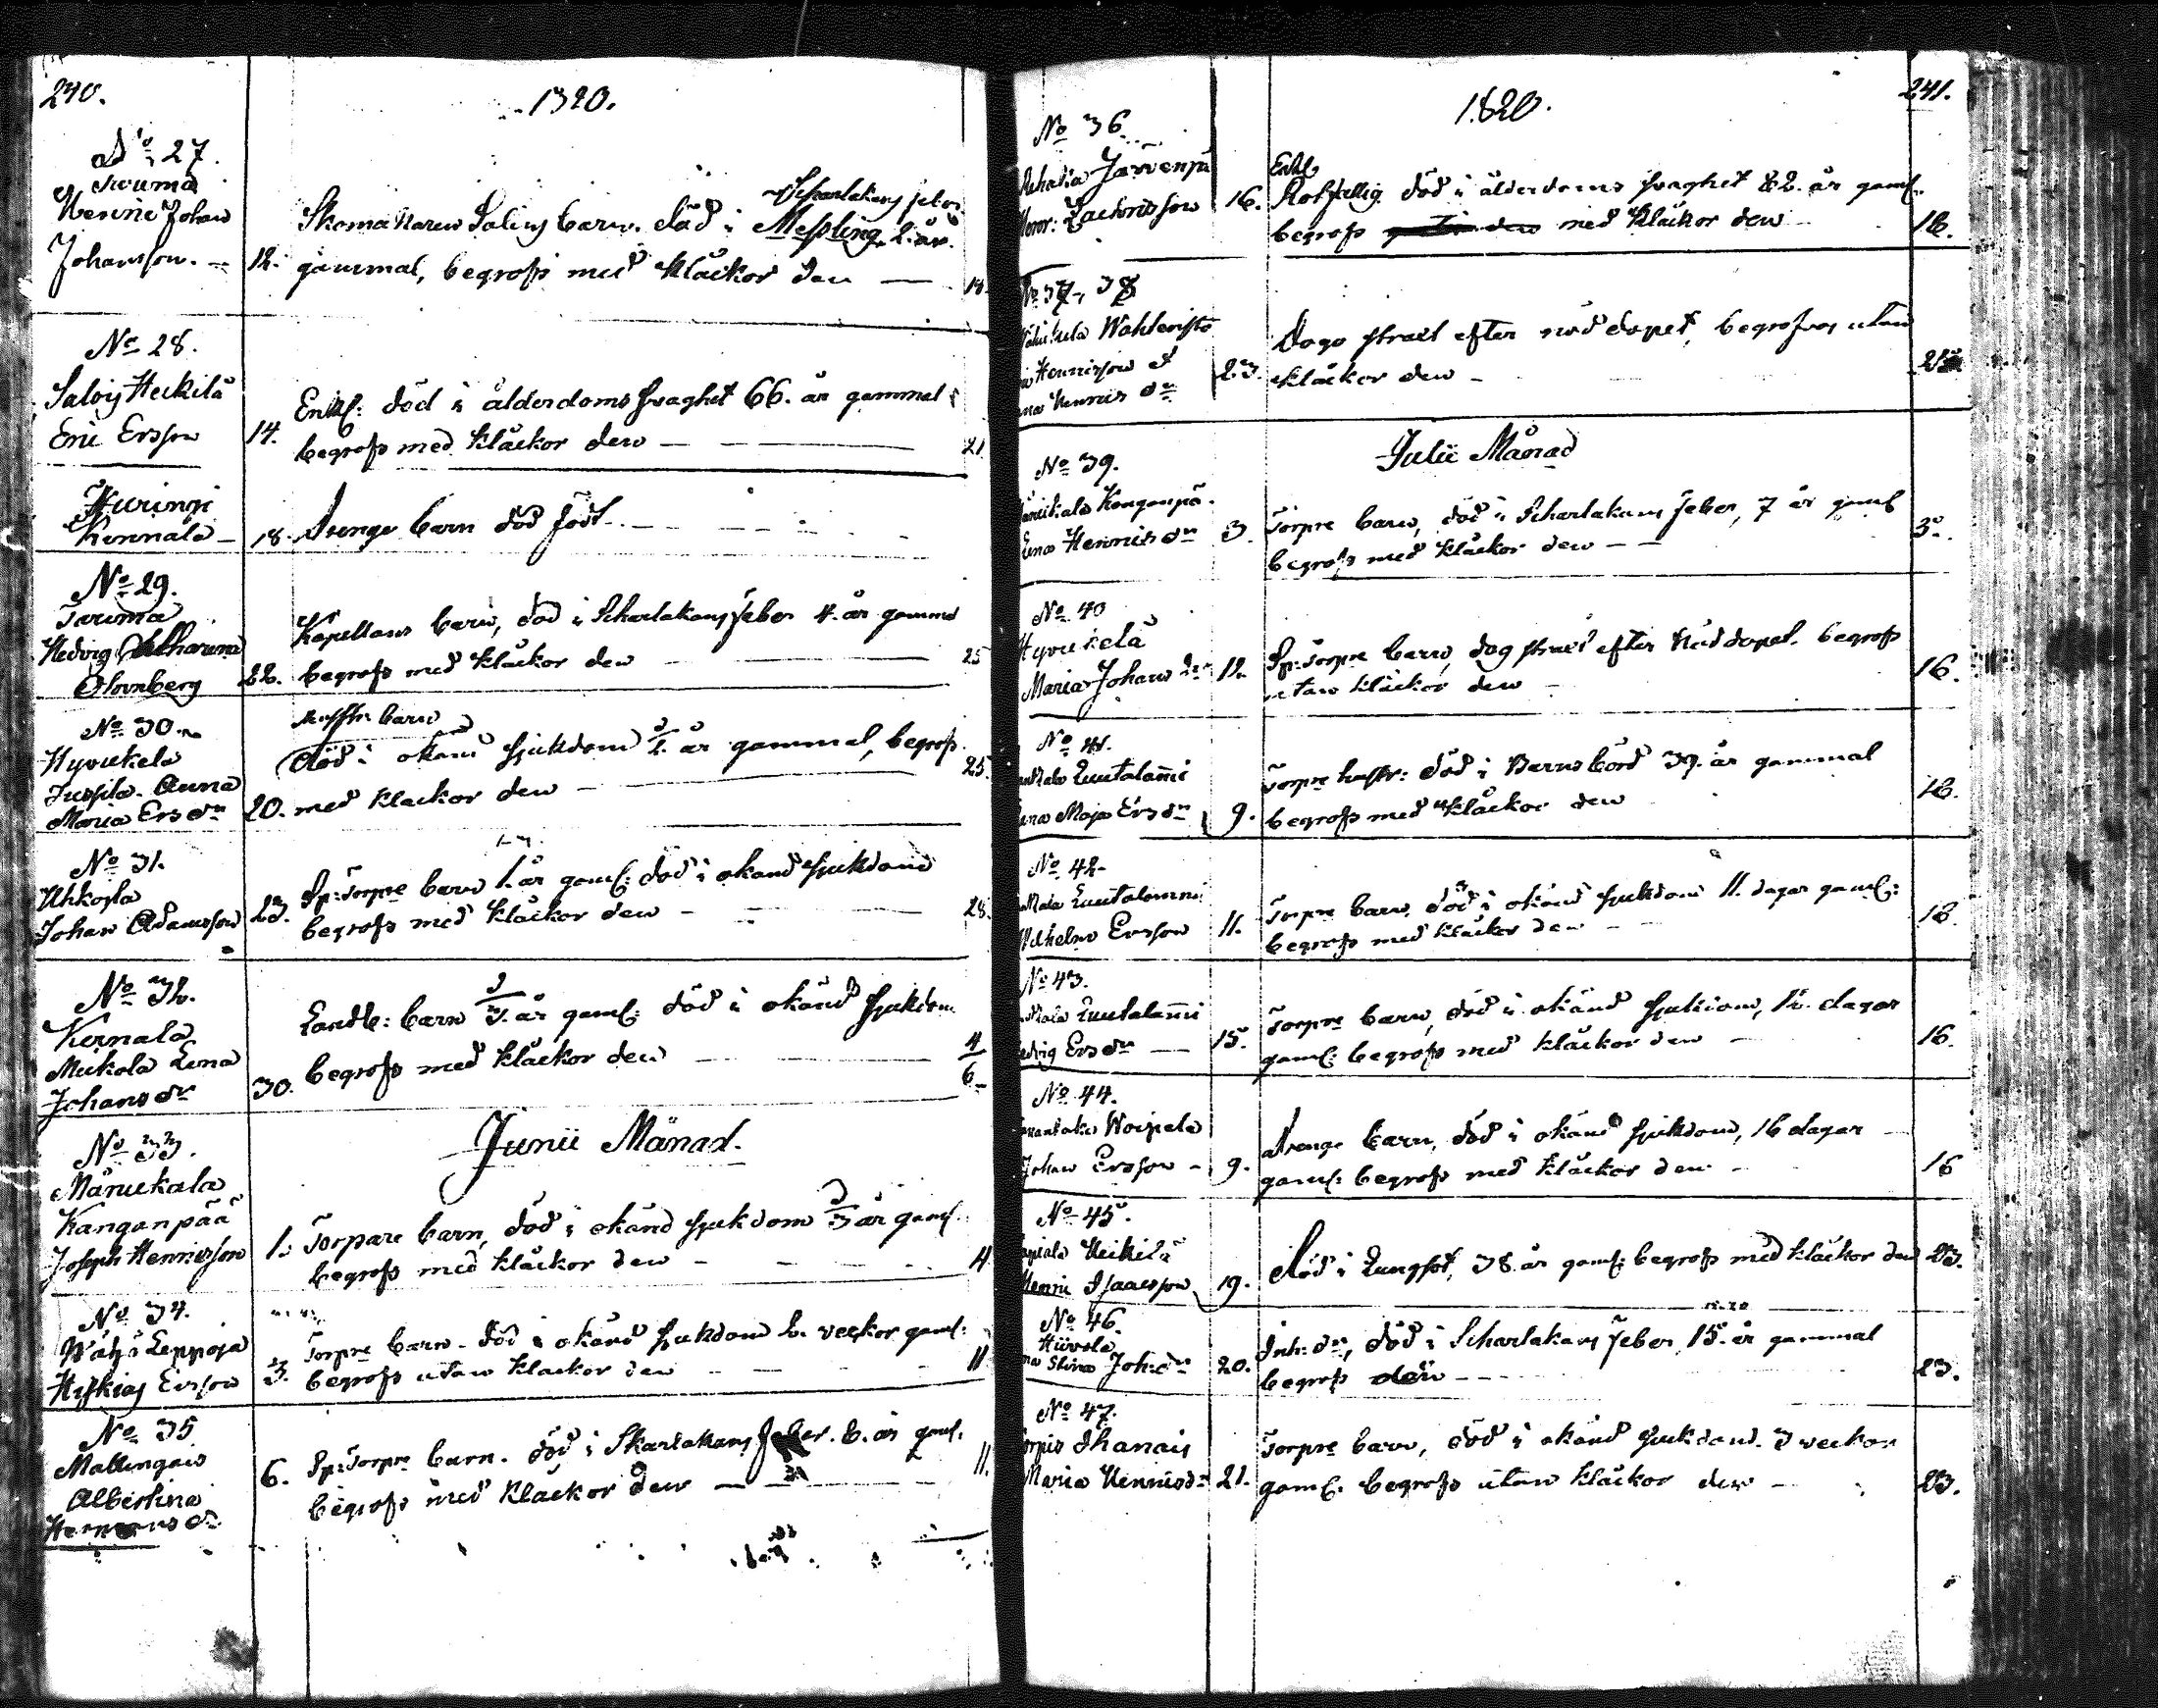 240.
1820.
No 27.
Henric Johan
Johansson. 12.
Scharlakans feber
Skomakaren Salins barn. död i Messling 2. år
gammal, begrofs med Klåckor den 14.
No 28.
Saloij Heikilä
Eric Ersson 14.
Enkl: död i ålderdoms svaghet 66. år gammal
begrofs med Klåckor den 21
Kernälä 18.
Drengs barn död född
No 29.
Hedvig Catharina
22.
Kapellans barn, död i Scharlakans feber 4. år gammal
begrofs med Klåckor den 25
No 30.
Hyvickelä
Jussila Anna
Maria Ersdr 20.
barn
död i okänd sjukdom 1/2 år gammal, begrofs
med klåckor den 25.
No 31.
Uhkoila
Johan Adamsson 23.
Sp: Torpre barn 1. år gaml: död i okänd sjukdom
begrofs med Klåckor den 28.
No 32.
Kernälä
Mickola Lena
Johans dr 30.
Landb: barn 3/4 år gaml: död i okänd sjukdom
begrofs med Klåckor den 4/6
Junii Månad.
No 33.
Mänickälä
Kanganpää
Joseph Henricsson 1.
Torpare barn, död i okänd sjukdom 3/4 år gaml.
begrofs med klåckor den 4.
No 34.
Wähä Leppoja
Hiskias Ersson 3.
Torpre barn. död i okänd sjukdom 2. veckor gaml:
begrofs utan klåckor den 11
No 35
Mallingais
Albertina
6.
Sp: Torpre barn. död i Skarlakans feber. 6. år gaml.
begrofs med Klåckor den 11.
241.
1820.
No 36.
Järvenpä
Zachrisson 16.
Enkl
Rotfattig död i ålderdoms svaghet 82. år gaml.
begrofs med Klåckor den 16.
No 37, 38
Henricsson &
Henrics dr 23.
Dogo strax efter nöd dopet, begrofvos utan
klåckor den 25
Julii Månad
No 39.
Kanganpä
Lena Henrics dr 3.
Torpre barn, död i Scharlakans feber, 7 år gaml
begrofs med klåckor den 3.
No 40
Hyvickelä
Maria Johans dr 12.
Sp: Torpre barn, dog strax efter Nöd dopet. begrofs
utan klåckor den 16.
No 41.
Luutalami
Maja Ersdr 9.
Torpre hustr: död i Barns börd 39. år gammal
begrofs med Klåckor den 16.
No 42.
Wilhelm Ersson 11.
Torpre barn, död i okänd sjukdom 11. dagar gaml:
begrofs med klåckor den 16.
No 43.
Luutalami
Hedvig Ersdr 15.
Torpre barn, död i okänd sjukdom, 12. dagar
gaml: begrofs med klåckor den 16.
No 44.
Woipala
Johan Ersson 9.
Drengs barn, död i okänd sjukdom, 16 dagar
gaml: begrofs med klåckor den 16
No 45.
Heikilä
Henric Isaacsson 19.
Död i Lungsot, 38. år gaml: begrofs med klåckor den 23.
No 46.
Stina Joh:dr 20.
Inh: dr, död i Scharlakans feber, 15. år gammal
begrofs den 23.
No 47.
Maria Henricsdr 21.
Torpre barn, död i okänd sjukdom. 3 veckor
gaml. begrofs utan klåckor den 23.